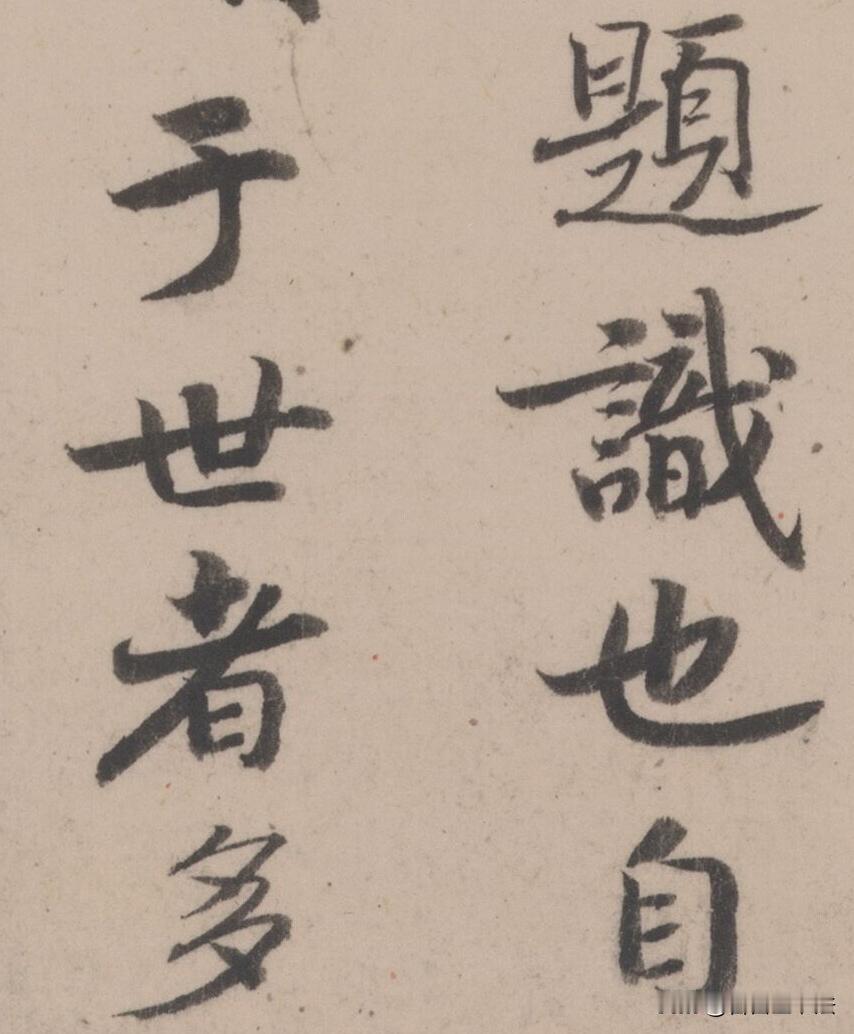 題識也自
于世者多